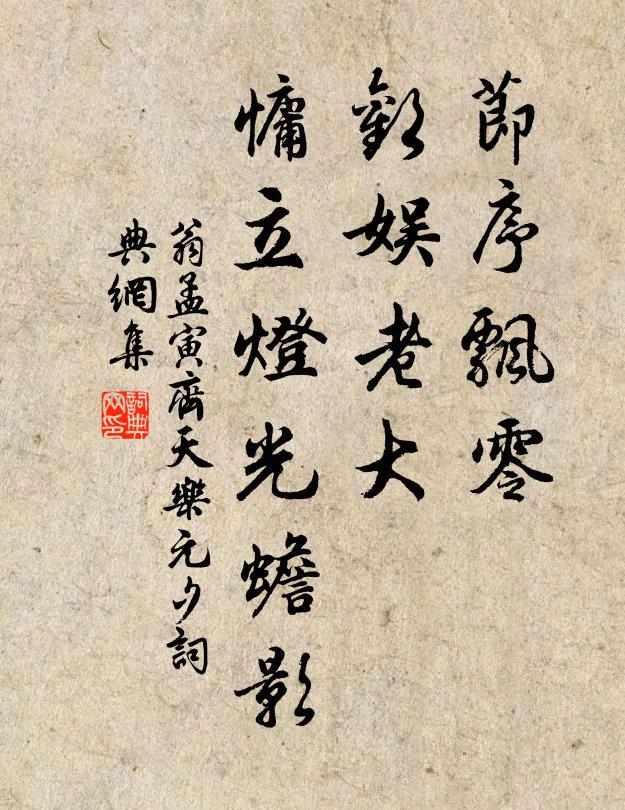 節序飄零
歡娛老大
慵立燈光蟾影
翁孟寅齊天樂元夕詞
典網集
詞典
网印